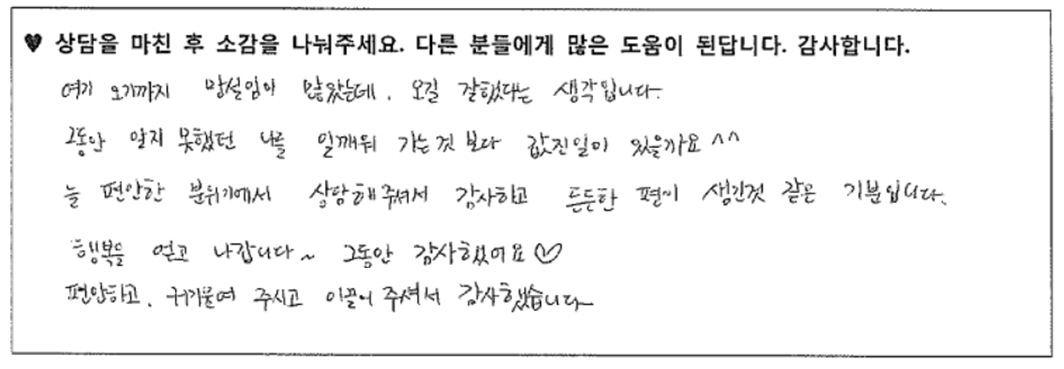 ♥ 상담을 마친 후 소감을 나눠주세요. 다른 분들에게 많은 도움이 된답니다. 감사합니다.
여기 오기까지 망설임이 많았는데, 오길 잘했다는 생각입니다.
그동안 알지 못했던 나를 일깨워 가는것 보다 값진일이 있을까요 ^^
늘 편안한 분위기에서 상담해주셔서 감사하고 든든한 편이 생긴것 같은 기분입니다.
행복을 얻고 나갑니다~ 그동안 감사했어요♡
편안하고, 귀기울여 주시고 이끌어 주셔서 감사했습니다